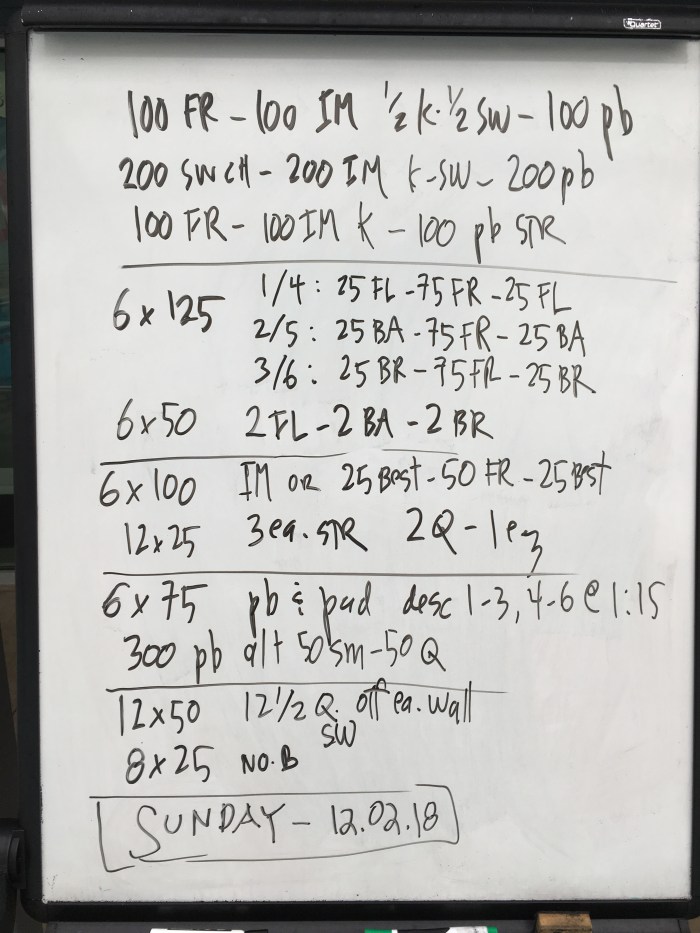 Quartet
100 FR - 100 IM 1/2 K · 1/2 SW - 100 pb
200 SWCH - 200 IM K-SW - 200 pb
100 FR - 100 IM K - 100 pb STR
6 x 125 1/4: 25 FL - 75 FR - 25 FL
2/5: 25 BA - 75 FR - 25 BA
3/6: 25 BR - 75 FR - 25 BR
6x50 2 FL - 2 BA - 2 BR
6x100 IM OR 25 Best - 50 FR - 25 Best
12x25 3 ea. STR 2Q - 1 ez
6 x 75 pb & pad desc 1-3, 4-6 @ 1:15
300 pb alt 50 sm - 50 Q
12x50 12 1/2 Q. off ea. wall
SW
8x25 NO. B
SUNDAY - 12.02.18